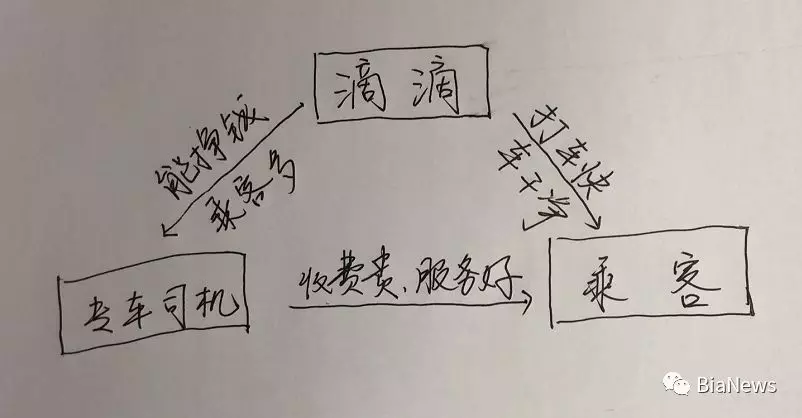 滴滴
能挣钱
乘客多
打车快
车干净
专车司机
收费贵、服务好
乘客
BiaNews